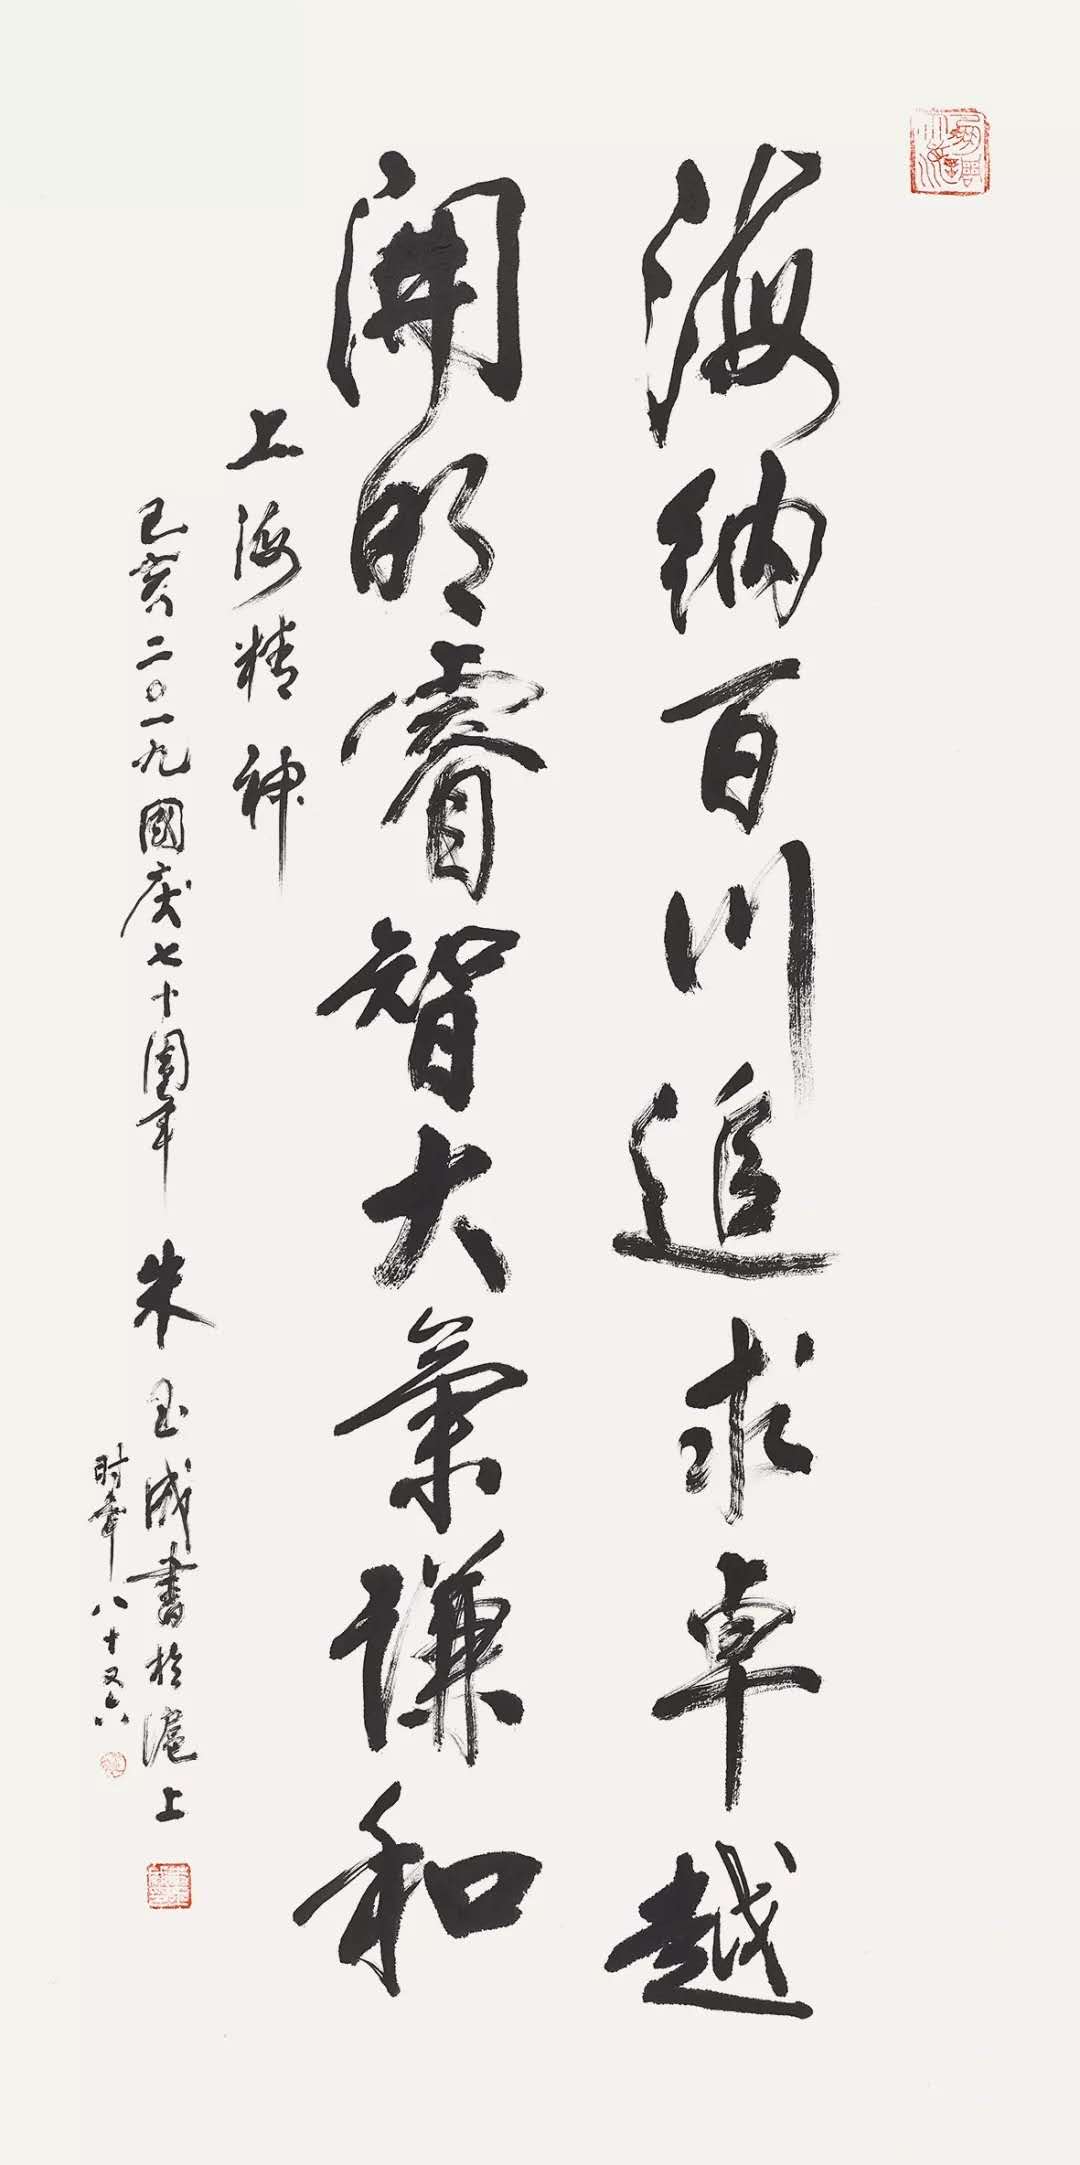 海纳百川追求卓越
開明睿智大氣謙和
上海精神
己亥二〇一九國庆七十周年 朱玉成書於滬上
时年八十又六